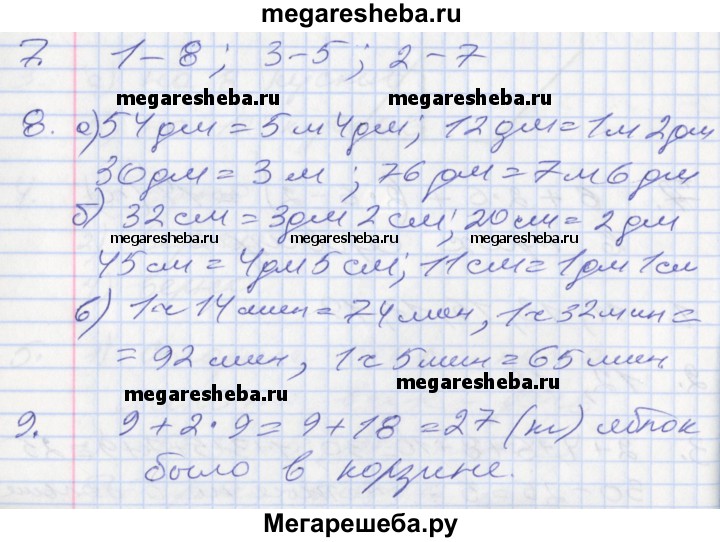 megaresheba.ru
7. 1-8; 3-5; 2-7
megaresheba.ru megaresheba.ru
8. а) 54 дм = 5 м 4 дм; 12 дм = 1 м 2 дм
30 дм = 3 м; 76 дм = 7 м 6 дм
б) 32 см = 3 дм 2 см; 20 см = 2 дм
megaresheba.ru megaresheba.ru megaresheba.ru
45 см = 4 дм 5 см; 11 см = 1 дм 1 см
в) 1 ч 14 мин = 74 мин, 1 ч 32 мин =
= 92 мин, 1 ч 5 мин = 65 мин
megaresheba.ru megaresheba.ru
9. 9 + 2 · 9 = 9 + 18 = 27 (кг) яблок
было в корзине.
Мегарешеба.ру